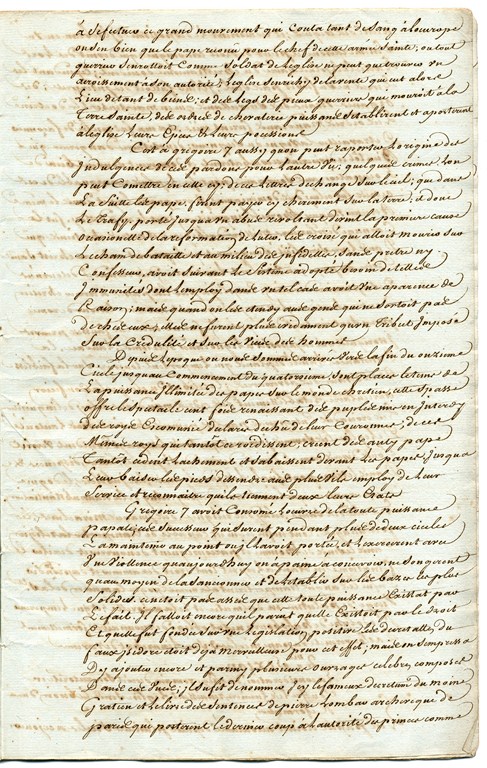 à Sefectuer ce grand mouvement qui Couta tant de Sang à Leurope
on Sen bien que le pape reconu pour le chef de cette armée Sainte, ou tout
guerrier Senrolloit Comme Soldat de leglise ne put que trouver un
acroissement à Son autorité; Leglise Senrichy de la vente qui eut alors
Lieu de tant de biens; et des legs des pieux guerriers qui mouroit à la
Terre Sainte, des ordres de chevalerie puissans Setablirent et aporterent
à leglise Leurs Epées & Leurs possessions
C'est à gregoire 7 aussy quon peut raporter Lorigine des
Indulgences et des pardons pour Lautre Vie; quelques crimes Lon
peut Cometre en cette cy; des Lettres dechange Sur le ciel; que dans
La Suitte les papes, firent payer cy cherement Sur la terre; et dont
Le trafy, porté Jusqua un abus revoltant devint la premiere cause
occasionelle de la reformation de luter, les croisés qui alloit mourir Sur
Le cham de bataille et au milieu des infidelles, Sans pretre ny
Confesseur, avoit Suivant Le Sisteme adopté besoin de telles
Immunités dont lemploy dans un tel cas avoit Une aparence de
Raison; mais quand on les etendy aux gens qui ne Sortoit pas
de chez eux; elles ne furent plus evidament quun tribut Imposé
Sur la Credulité et Sur les Vices des hommes
Depuis Lepoque ou nous Sommes arrivés Vers la fin du onzieme
Ciecle jusquau Commencement du quatorzieme Sont placés le tems de
La puissance Illimitée des papes Sur le monde chretien, cette Espasse
offre le Spectacle cent fois renaissant des puples mis en Interdy
des roys Excomunié declarés dechus de leur Couronnes; de ces
Mêmes roys qui tantot ce roidissent, creent des anty papes
Tantôt cedent Lachement et Sabaissent devant Les papes, Jusqua
Leur baiser les pieds dessendre aux plus Vils employ de leur
Service et reconnaitre quils tiennent deux leurs Etats
Gregoire 7 avoit Consomé Louvre de la toute puissance
papale; ces Sucesseurs qui furent pendant plus de deux ciecles
La maintinir au point ou il Lavoit portée, et Lexercerent avec
Une Violence quaujourdhuy on a peine à concevoir, ne Songerent
quau moyen de la Sanctionner et de letablir Sur des bazes les plus
Solides, ce netoit pas assés que cette toute puissance Existat par
Le fait. Il falloit encore quil parut quelle Existoit par le droit
Et quelle fut fondée Sur une Legislation positive. Les decretalles du
faux isidore etoit deja merveilleuse pour cet effet; mais on Sempressa
Dy ajouter encore et parmy plusieurs ouvrages celebres, composés
Dans ces Vües; il Sufit de nommer Icy le fameux decretum du moine
Gratien et le livre des Sentences de pierre Lombar archeveque de
paris qui porterent le dernier coup à Lautorité des princes comme